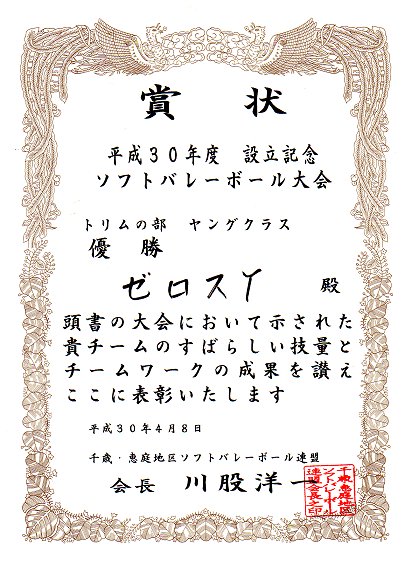 賞状
平成30年度 設立記念
ソフトバレーボール大会
トリムの部 ヤングクラス
優勝
ゼロスY 殿
頭書の大会において示された
貴チームのすばらしい技量と
チームワークの成果を讃え
ここに表彰いたします
平成30年4月8日
千歳・恵庭地区ソフトバレーボール連盟
会長 川股洋一
千歳恵庭地区
ソフトバレーボール
連盟会長之印